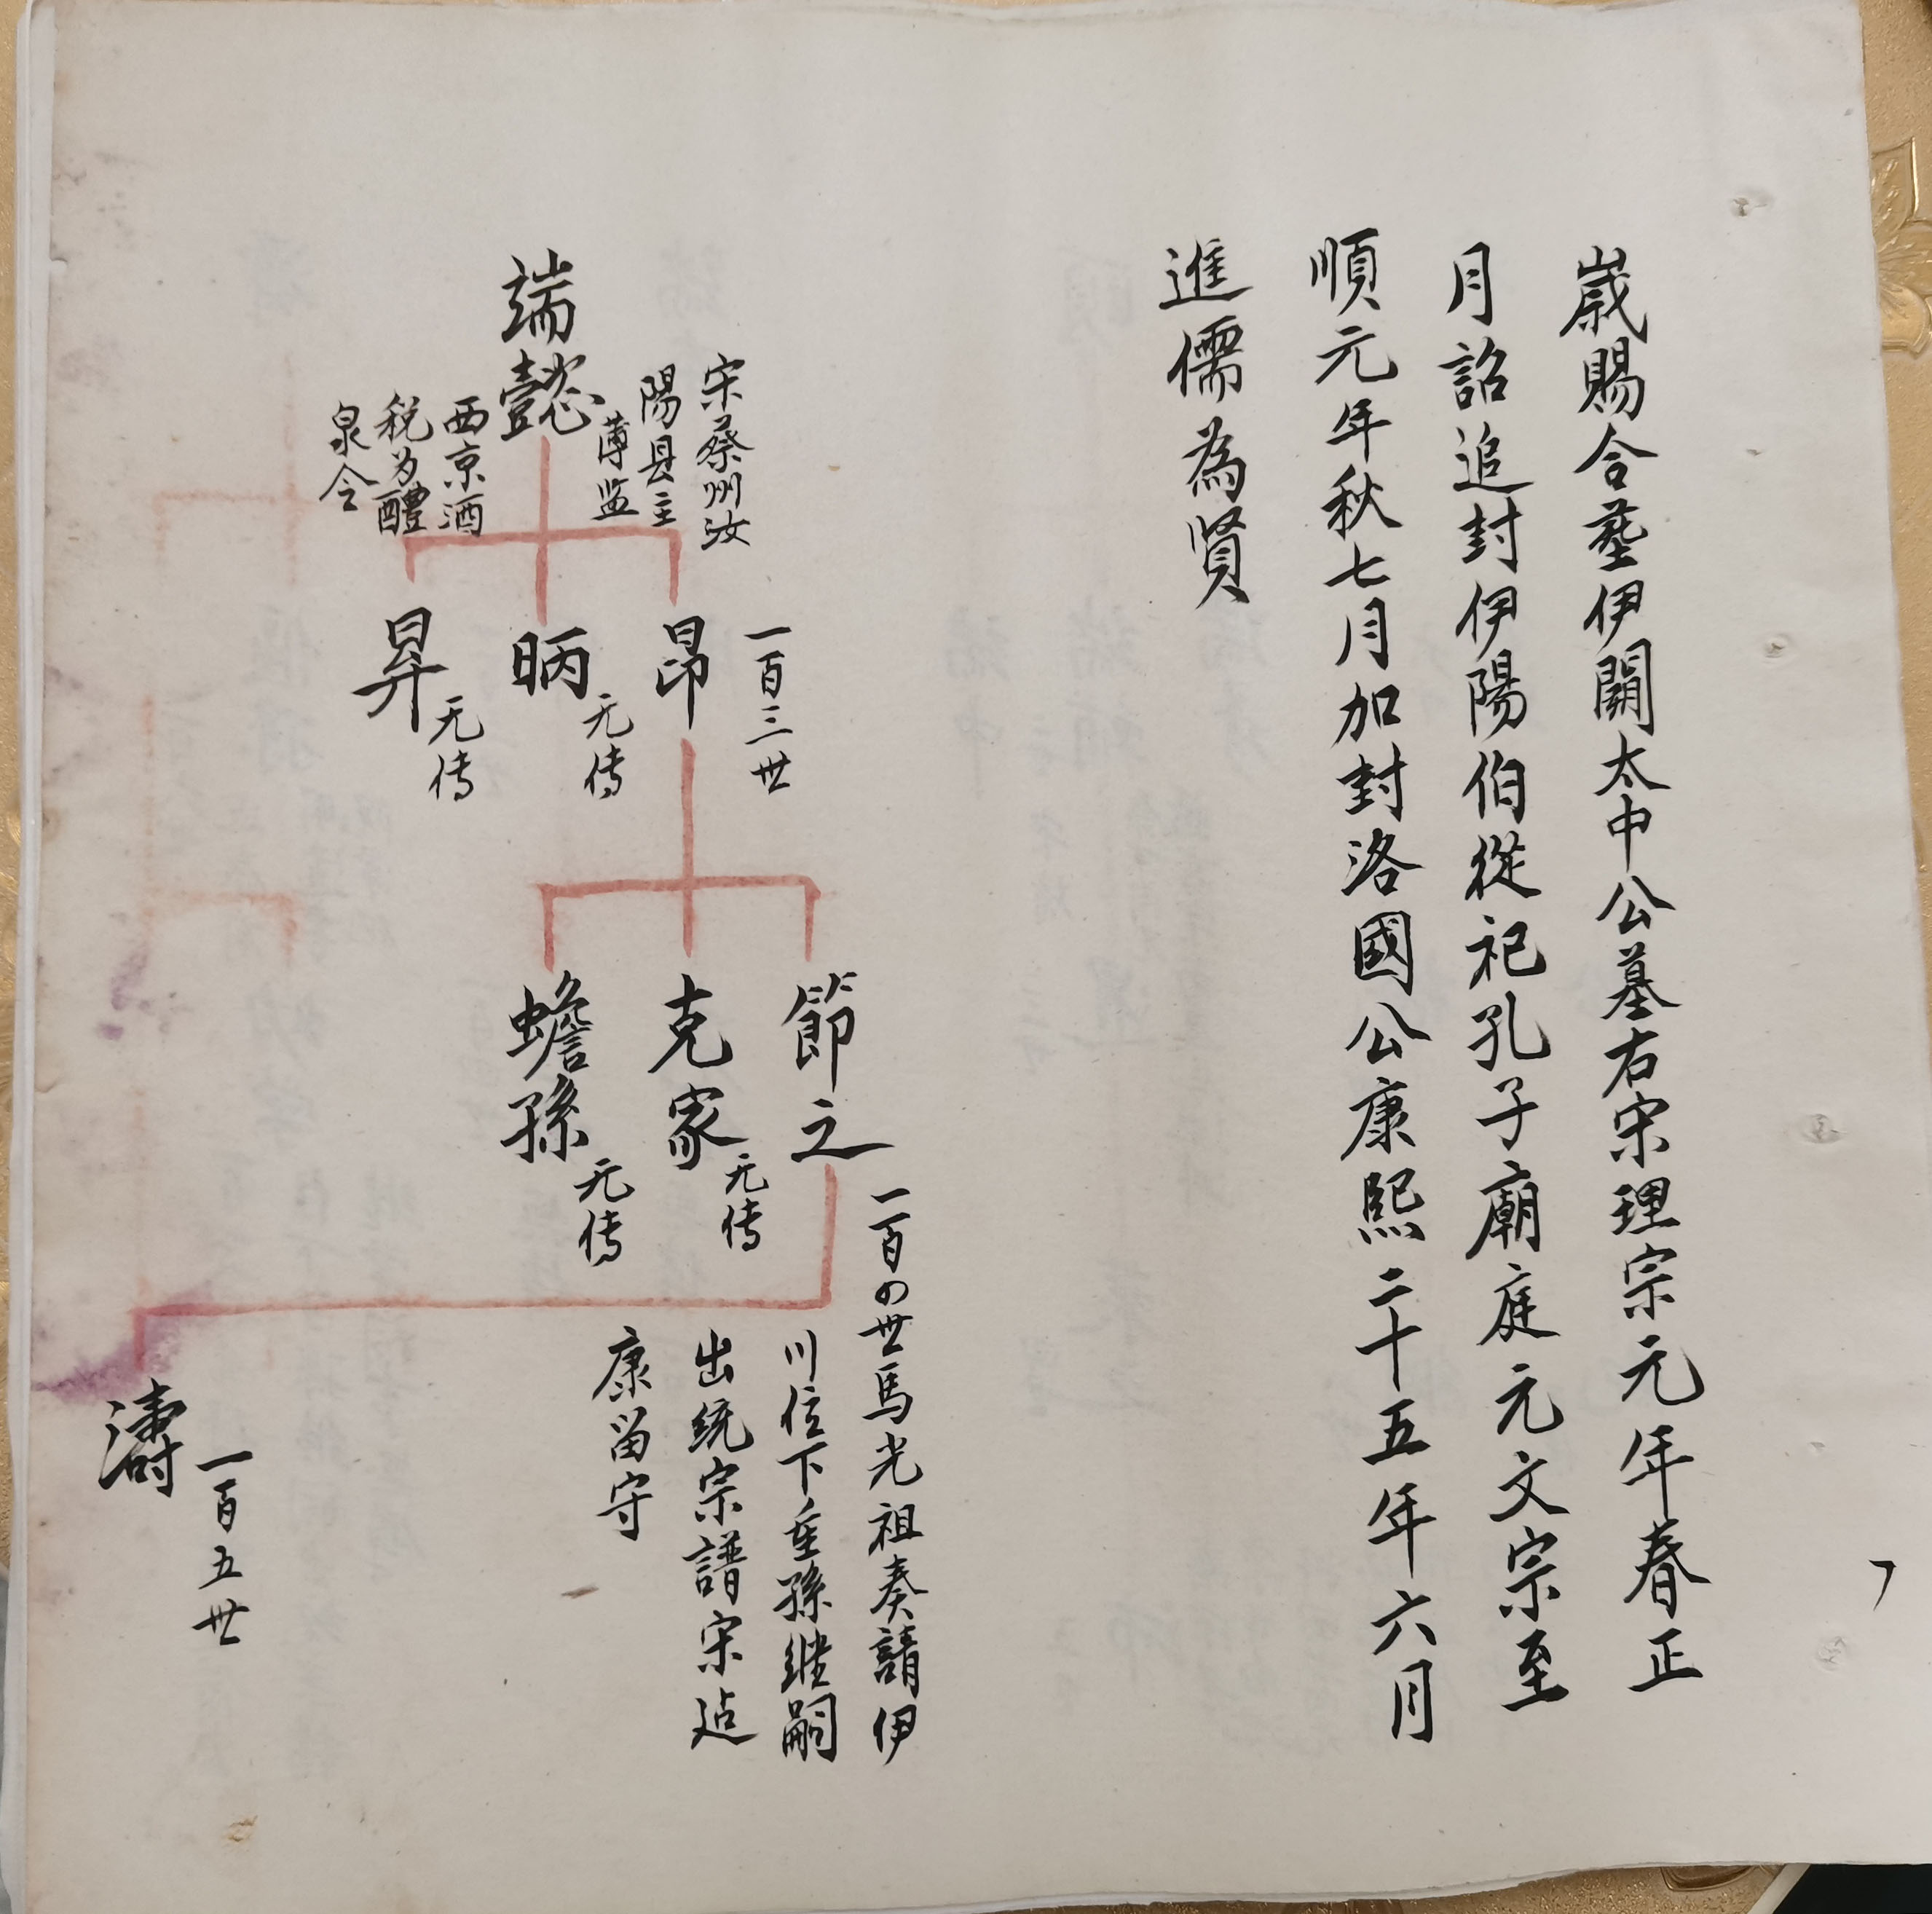 歲賜合塟伊闗太中公墓右宋理宗元年春正
月詔追封伊陽伯從祀孔子廟庭元文宗至
順元年秋七月加封洛國公康熙二十五年六月
進儒為賢
端懿
宋蔡州汝
陽县主
薄监
西京酒
税为醴
泉令
一百三世
昂
昞
无傳
昇
无傳
節之
一百の世馬光祖奏請伊
川位下重孫继嗣
出统宗譜宋
康留守
克家
无傳
蟾孫
无傳
濤
一百五世
7